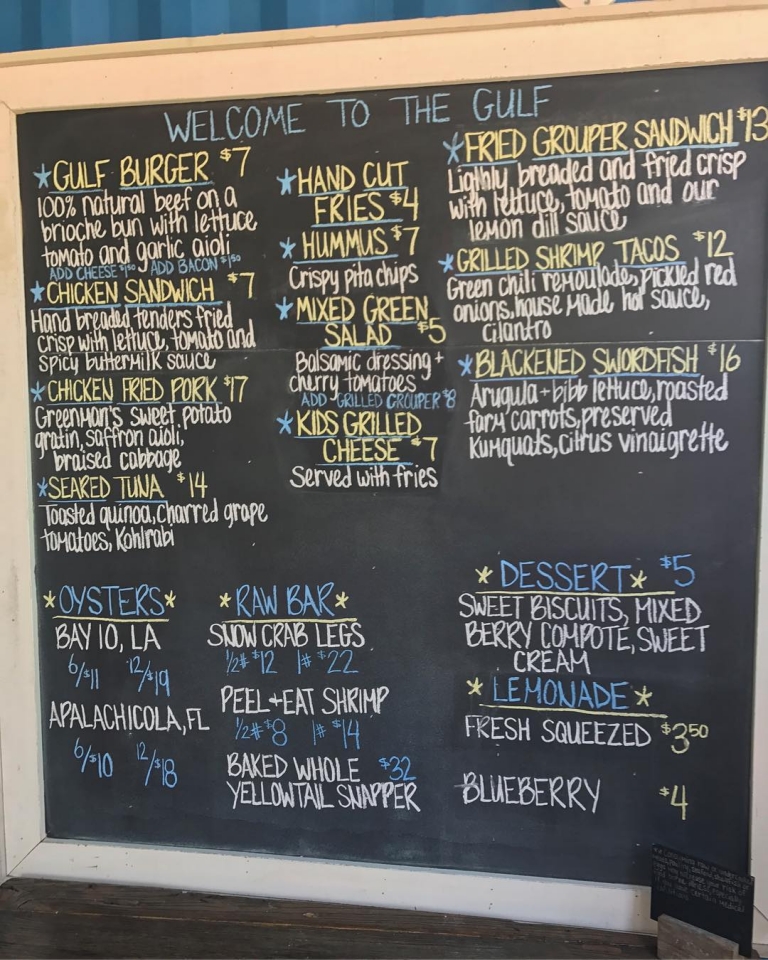 WELCOME TO THE GULF
*GULF BURGER $7
100% natural beef on a
brioche bun with lettuce
tomato and garlic aioli
ADD CHEESE $1.50 ADD BACON $1.50
*CHICKEN SANDWICH $7
Hand breaded tenders fried
crisp with lettuce, tomato and
spicy buttermilk sauce
*CHICKEN FRIED PORK $17
Greenman's sweet potato
gratin, saffron aioli,
braised cabbage
*SEARED TUNA $14
Toasted quinoa, charred grape
tomatoes, Kohlrabi
*HAND CUT
FRIES $4
*HUMMUS $7
Crispy pita chips
*MIXED GREEN
SALAD $5
Balsamic dressing +
cherry tomatoes
ADD GRILLED GROUPER $8
*KIDS GRILLED
CHEESE $7
Served with fries
*FRIED GROUPER SANDWICH $13
Lighly breaded and fried crisp
with lettuce, tomato and our
lemon dill sauce
*GRILLED SHRIMP TACOS $12
Green chili remoulade, pickled red
onions, house made hot sauce,
cilantro
*BLACKENED SWORDFISH $16
Arugula + bibb lettuce, roasted
farm carrots, preserved
Kumquats, citrus vinaigrette
*OYSTERS*
BAY 10, LA
6/$11 12/$19
APALACHICOLA, FL
6/$10 12/$18
*RAW BAR*
SNOW CRAB LEGS
1/2# $12 1# $22
PEEL + EAT SHRIMP
1/2# $8 1# $14
BAKED WHOLE $32
YELLOWTAIL SNAPPER
*DESSERT* $5
SWEET BISCUITS, MIXED
BERRY COMPOTE, SWEET
CREAM
*LEMONADE*
FRESH SQUEEZED $3.50
BLUEBERRY $4